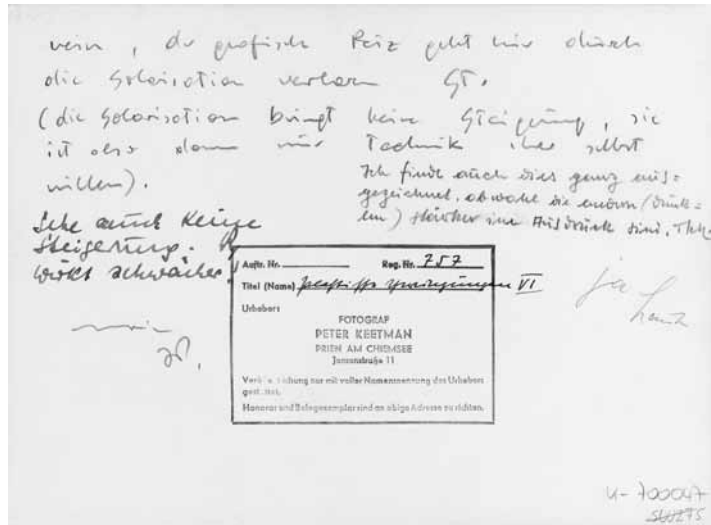 nein, der grafische Reiz geht hier durch
die Solarisation verloren GT.
(die Solarisation bringt keine Steigerung, sie
ist also dann nur Technik ihrer selbst
willen).
Ich finde auch dies ganz aus=
gezeichnet, obwohl die andern (dunk=
len) stärker im Ausdruck sind,
Sehe auch keine
Steigerung.
wirkt schwächer!
nein
ja
Auftr. Nr. Reg. Nr. 757
Titel (Name) Schwingungen VI
Urhebers
FOTOGRAF
PETER KEETMAN
PRIEN AM CHIEMSEE
Jensenstraße 11
Veröffentlichung nur mit voller Namensnennung des Urhebers
gestattet.
Honorar und Belegexemplar sind an obige Adresse zu richten.
U-700047